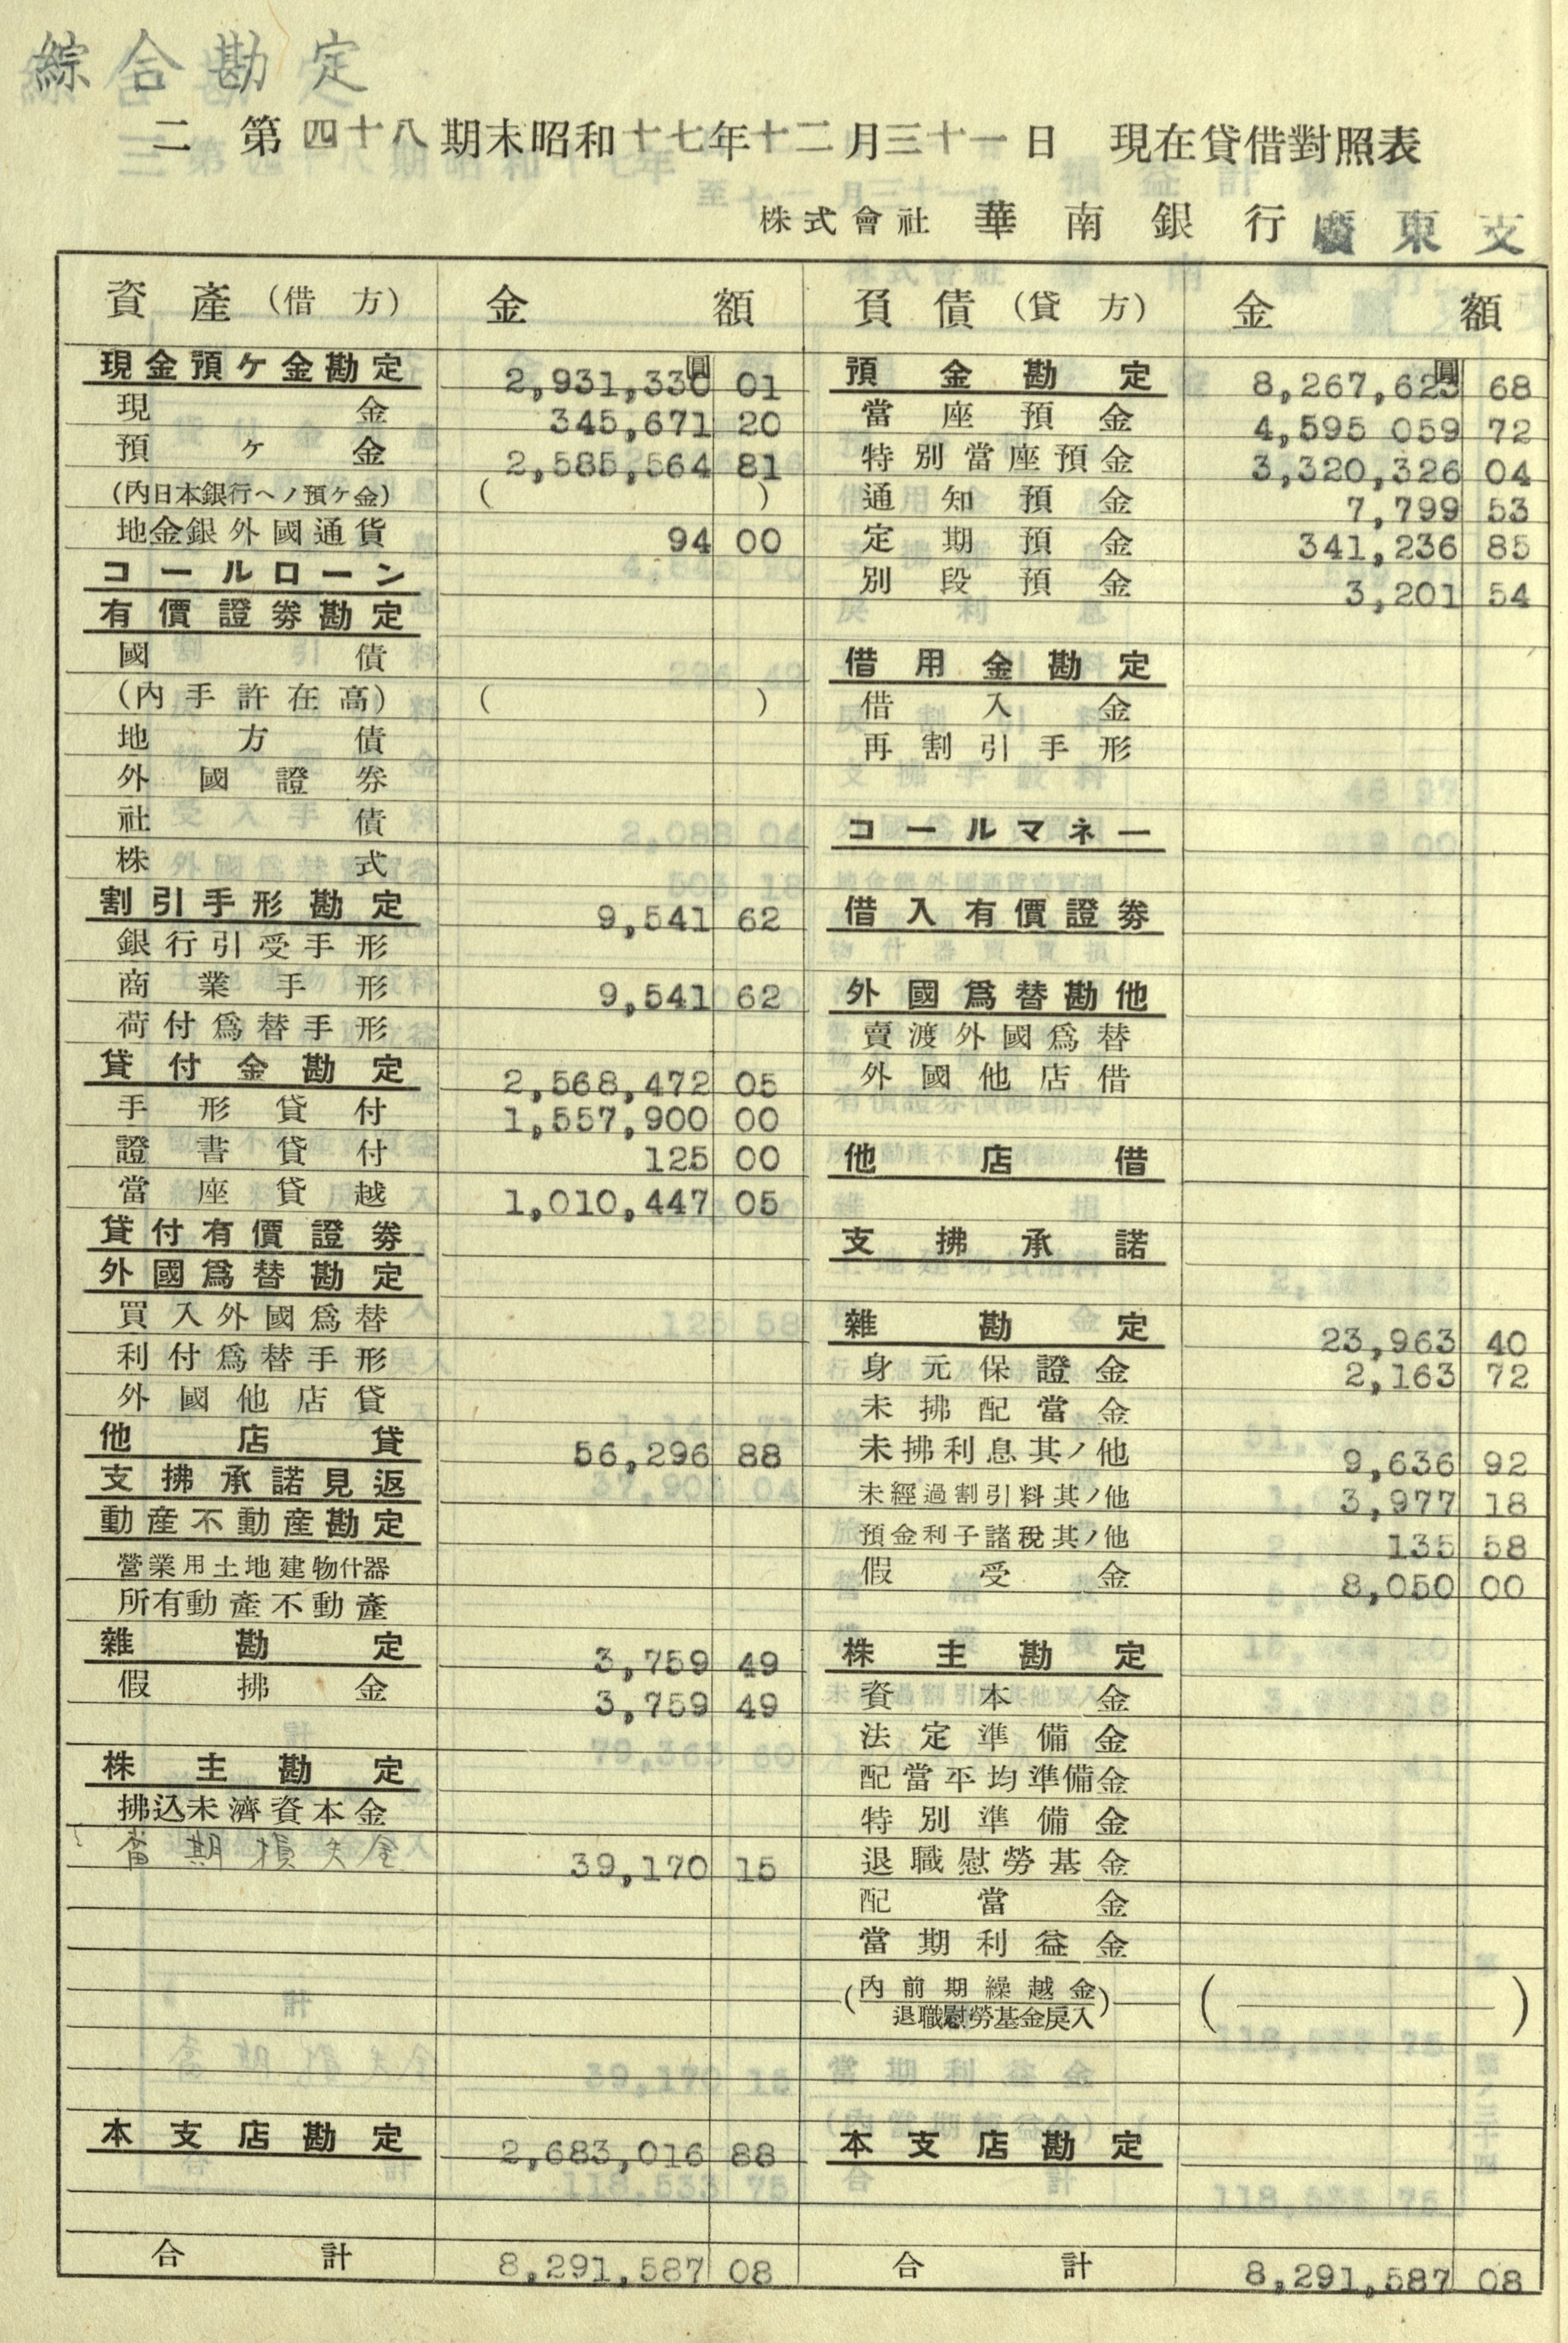 綜合勘定
二 第四十八期末昭和十七年十二月三十一日 現在貸借對照表
株式會社 華南銀行廣東支
資產(借方) 金額 負債(貸方) 金額
現金預ケ金勘定 2,931,330圓01
現金 345,671 20
預ケ金 2,585,564 81
(內日本銀行ヘノ預ケ金) ( )
地金銀外國通貨 94 00
コールローン
有價證券勘定
國債
(內手許在高) ( )
地方債
外國證券
社債
株式
割引手形勘定 9,541 62
銀行引受手形
商業手形 9,541 62
荷付爲替手形
貸付金勘定 2,568,472 05
手形貸付 1,557,900 00
證書貸付 125 00
當座貸越 1,010,447 05
貸付有價證券
外國爲替勘定
買入外國爲替
利付爲替手形
外國他店貸
他店貸 56,296 88
支拂承諾見返
動產不動產勘定
營業用土地建物什器
所有動產不動產
雜勘定 3,759 49
假拂金 3,759 49
株主勘定
拂込未濟資本金
當期損失金 39,170 15
本支店勘定 2,683,016 88
合計 8,291,587 08
預金勘定 8,267,623圓68
當座預金 4,595 059 72
特別當座預金 3,320,326 04
通知預金 7,799 53
定期預金 341,236 85
別段預金 3,201 54
借用金勘定
借入金
再割引手形
コールマネー
借入有價證券
外國爲替勘他
賣渡外國爲替
外國他店借
他店借
支拂承諾
雜勘定 23,963 40
身元保證金 2,163 72
未拂配當金
未拂利息其ノ他 9,636 92
未經過割引料其ノ他 3,977 18
預金利子諸稅其ノ他 135 58
假受金 8,050 00
株主勘定
資本金
法定準備金
配當平均準備金
特別準備金
退職慰勞基金
配當金
當期利益金
(內前期繰越金
退職慰勞基金戾入) ( )
本支店勘定
合計 8,291,587 08